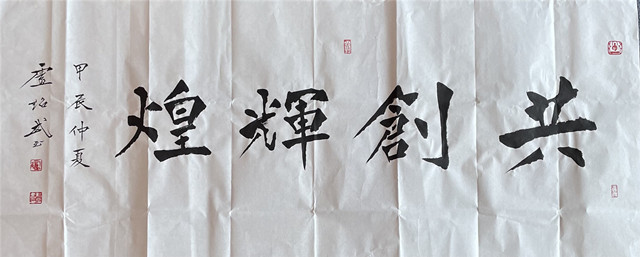 共創輝煌
甲辰仲夏
盧紹武书